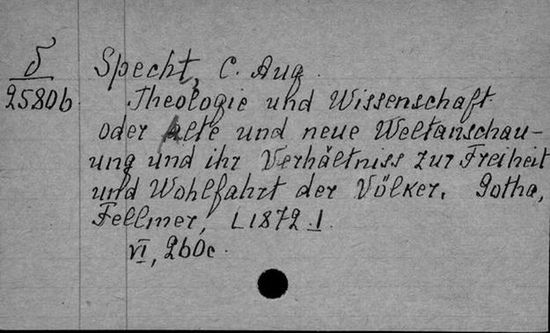 δ
25806
Specht, C. Aug.
Theologie und Wissenschaft
oder Alte und neue Weltanschau-
ung und ihr Verhältniss zur Freiheit
und Wohlfahrt der Völker. Gotha,
Fellmer, [1872].
VI, 260c.